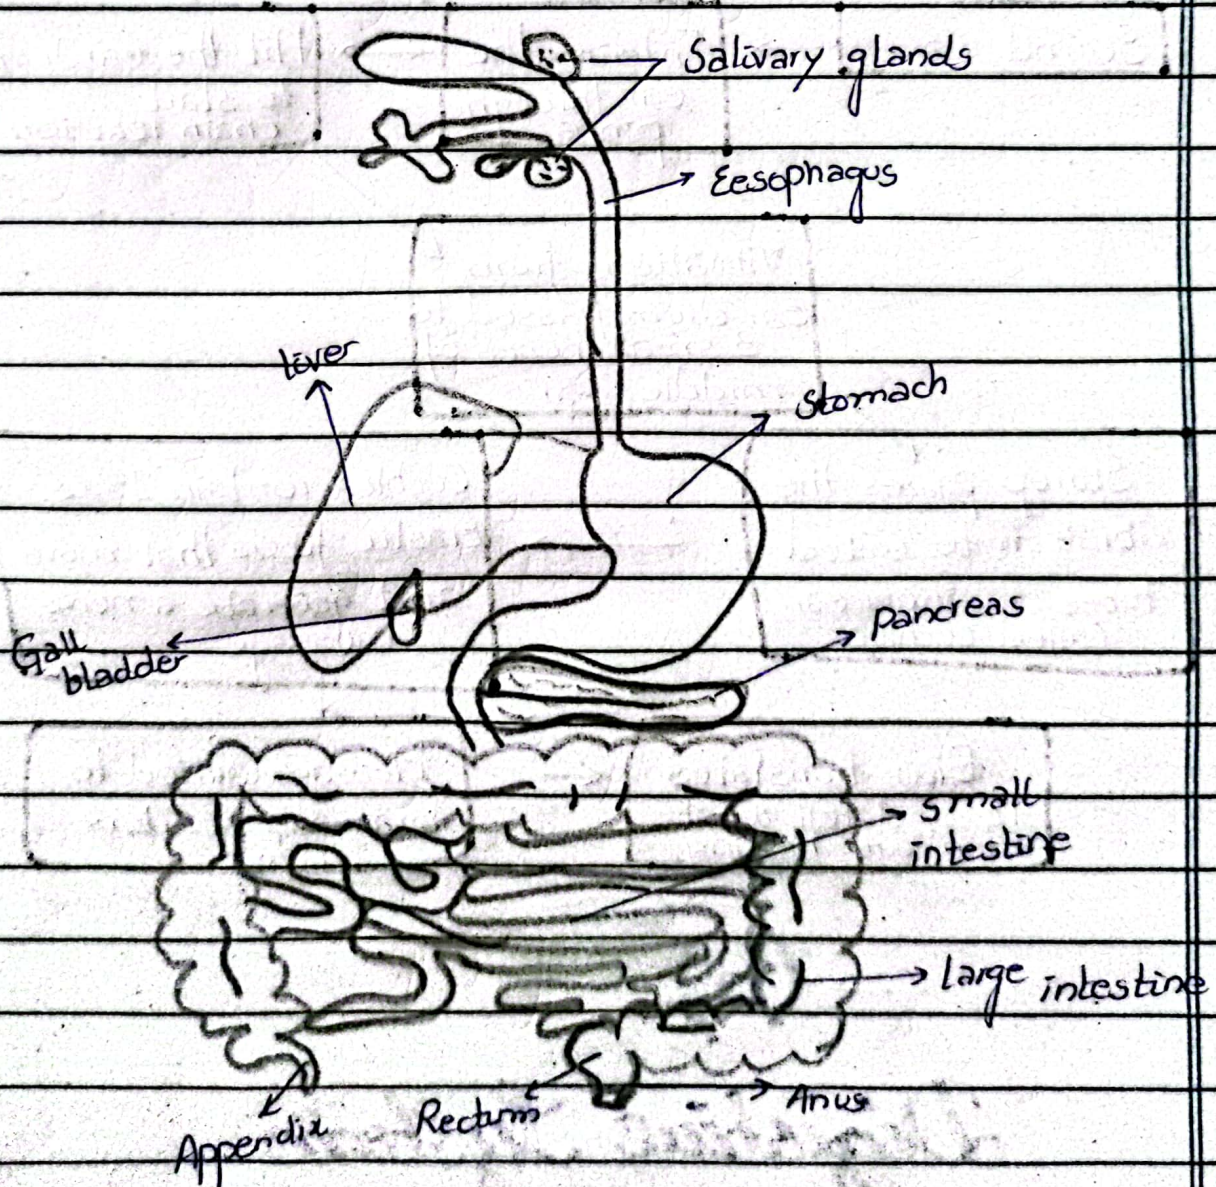 Salivary glands
Eesophagus
liver
Stomach
Gall
bladder
Pancreas
small
intestine
large intestine
Appendix
Rectum
Anus